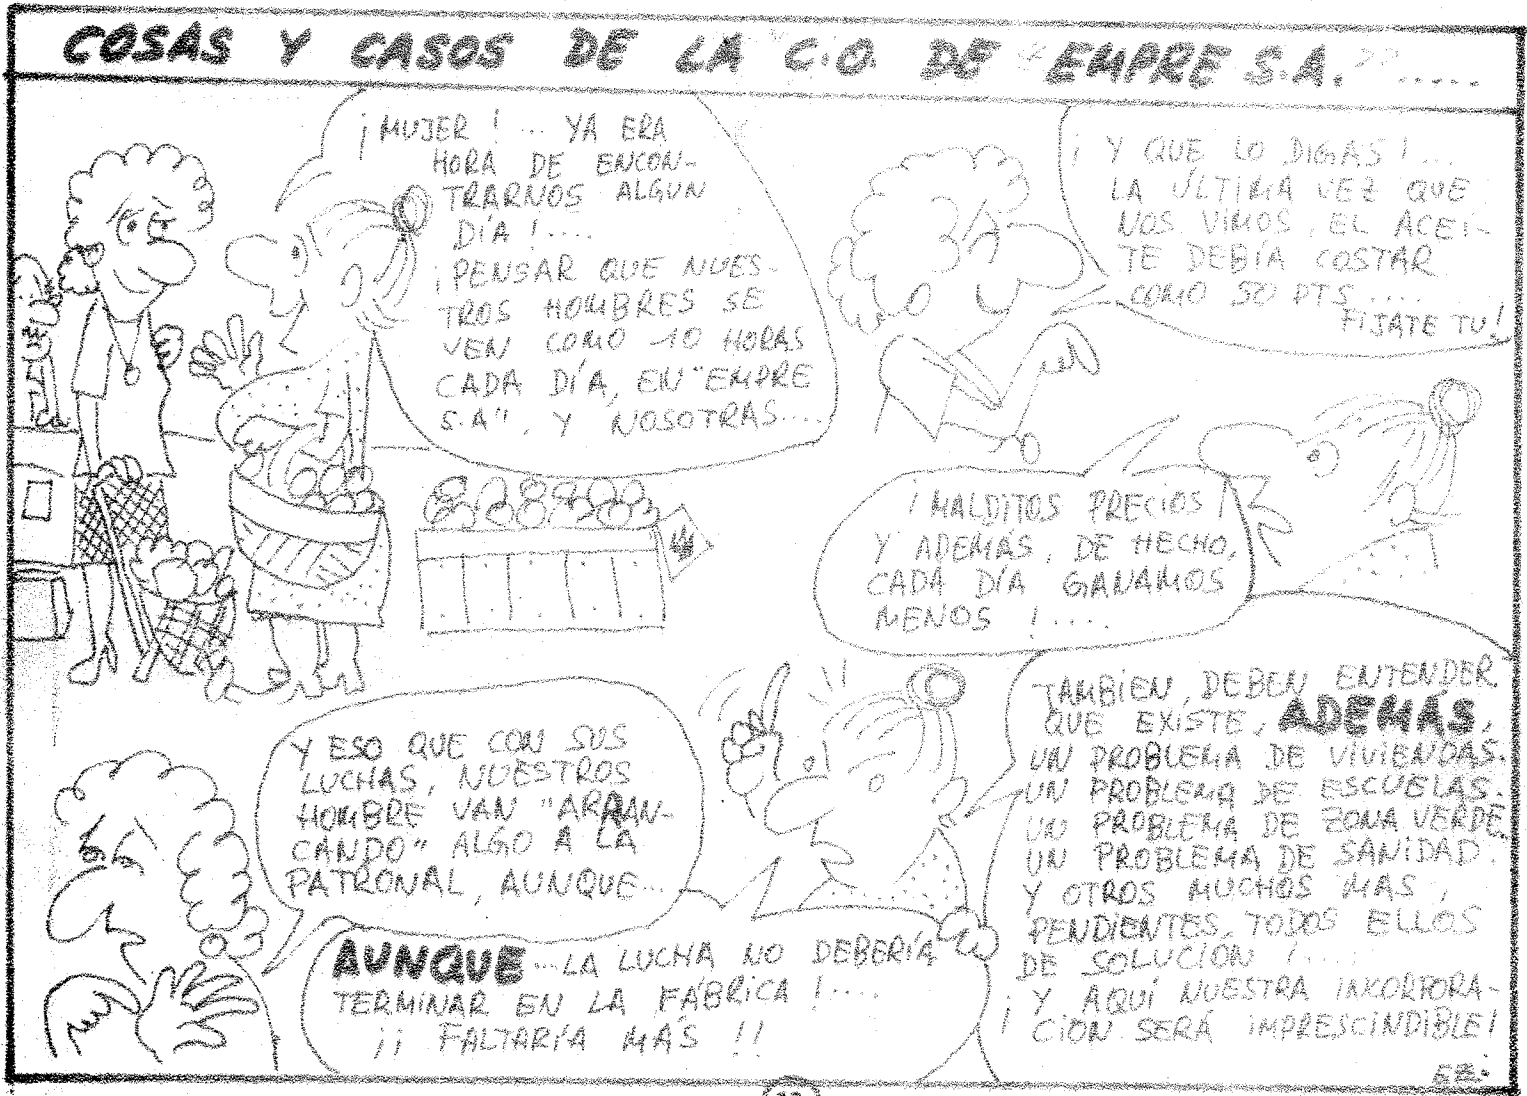 COSAS Y CASOS DE LA C.O. DE "EMPRE S.A." .....
¡MUJER! ... YA ERA
HORA DE ENCON-
TRARNOS ALGUN
DÍA!....
¡PENSAR QUE NUES-
TROS HOMBRES SE
VEN COMO 10 HORAS
CADA DÍA, EN "EMPRE
S.A", Y NOSOTRAS....
¡Y QUE LO DIGAS!...
LA ÚLTIMA VEZ QUE
NOS VIMOS, EL ACEI-
TE DEBÍA COSTAR
COMO 50 PTS....
FIJATE TU!
¡MALDITOS PRECIOS!
Y ADEMÁS, DE HECHO,
CADA DÍA GANAMOS
MENOS !....
Y ESO QUE CON SUS
LUCHAS, NUESTROS
HOMBRE VAN "ARRAN-
CANDO" ALGO A LA
PATRONAL, AUNQUE...
AUNQUE...LA LUCHA NO DEBERÍA
TERMINAR EN LA FÁBRICA !....
¡¡ FALTARÍA MÁS !!
TAMBIEN, DEBEN ENTENDER
QUE EXISTE, ADEMÁS,
UN PROBLEMA DE VIVIENDAS.
UN PROBLEMA DE ESCUELAS.
UN PROBLEMA DE ZONA VERDE
UN PROBLEMA DE SANIDAD.
Y OTROS MUCHOS MAS,
PENDIENTES, TODOS ELLOS
DE SOLUCION !....
¡ Y AQUÍ NUESTRA INCORPORA-
CION SERÁ IMPRESCINDIBLE!